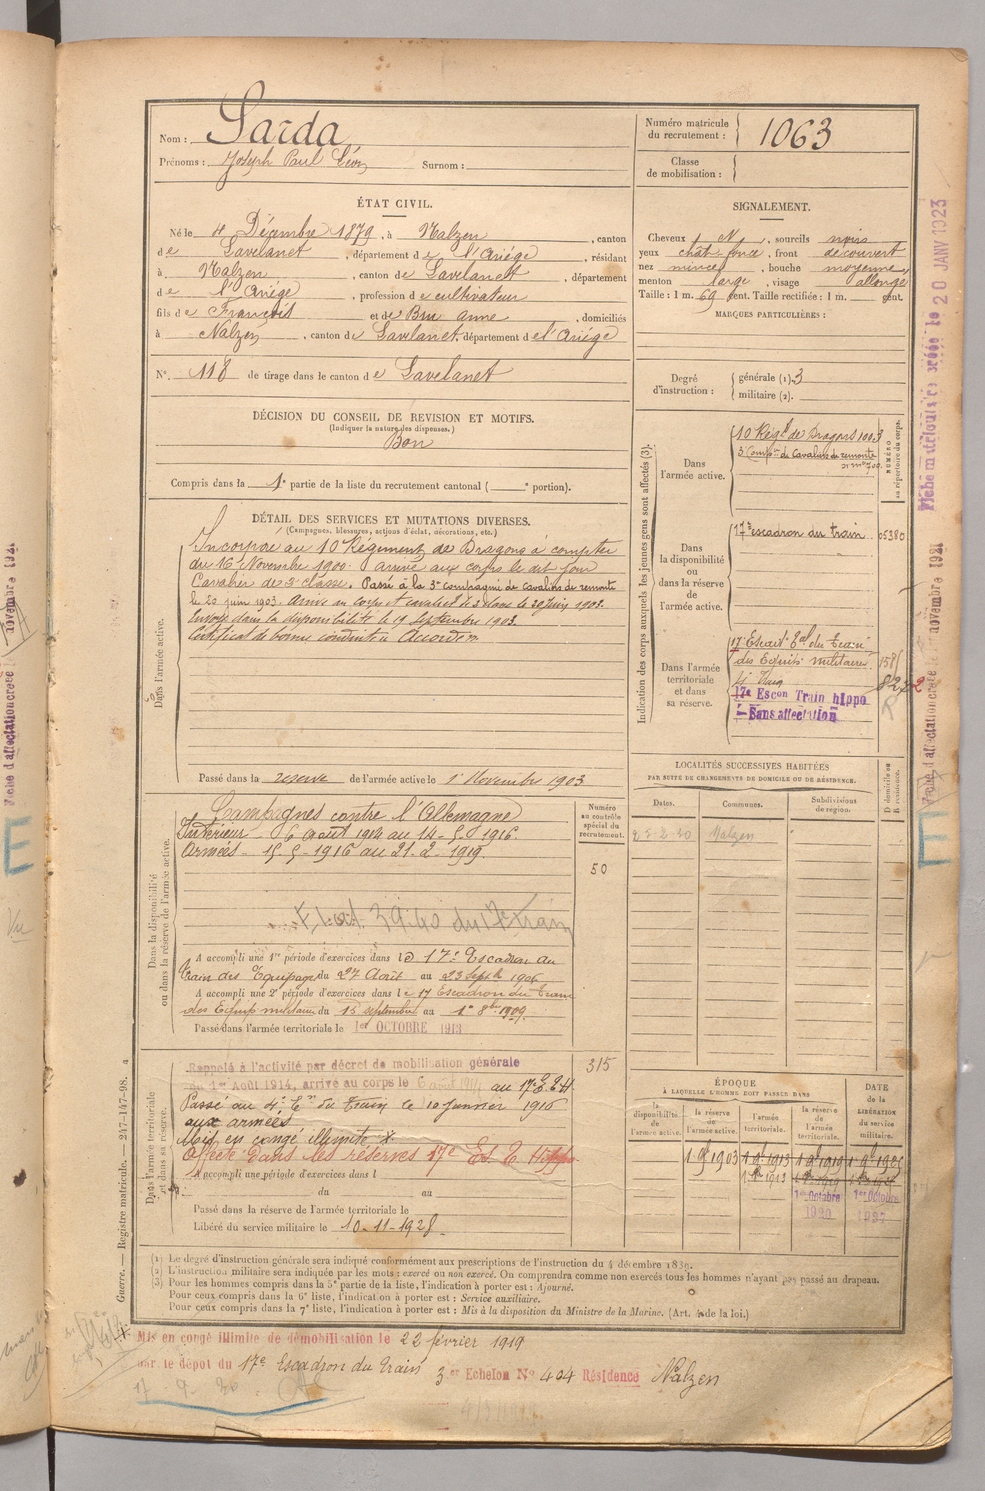 Nom : Sarda
Prénoms : Joseph Paul Léon Surnom :
Numéro matricule du recrutement : 1063
Classe de mobilisation :
ÉTAT CIVIL.
Né le 4 Décembre 1879, à Nalzen, canton
de Lavelanet, département de l'Ariège, résidant
à Nalzen, canton de Lavelanet, département
de l'Ariège, profession de cultivateur
fils de François et de Bru Anne, domiciliés
à Nalzen, canton de Lavelanet, département de l'Ariège
N° 118 de tirage dans le canton de Lavelanet
SIGNALEMENT.
Cheveux N, sourcils noirs
yeux chât foncé, front découvert
nez mince, bouche moyenne,
menton large, visage allongé
Taille : 1 m. 69 cent. Taille rectifiée : 1 m. cent.
MARQUES PARTICULIÈRES :
Degré d'instruction : générale (1). 3
militaire (2).
DÉCISION DU CONSEIL DE REVISION ET MOTIFS.
(Indiquer la nature des dispenses.)
Bon
Compris dans la 1e partie de la liste du recrutement cantonal ( e portion).
DÉTAIL DES SERVICES ET MUTATIONS DIVERSES.
(Campagnes, blessures, actions d'éclat, décorations, etc.)
Dans l'armée active.
Incorporé au 10 Régiment de Dragons à compter
du 16 Novembre 1900. arrivé au corps le dit jour
Cavalier de 2e classe. Passé à la 3e Compagnie de Cavaliers de remonte
le 20 juin 1903. Arrivé au corps et cavalier de 2e classe le 20 juin 1903.
Envoyé dans la disponibilité le 19 septembre 1903.
Certificat de bonne conduite Accordé.
Passé dans la reserve de l'armée active le 1er Novembre 1903
Indication des corps auxquels les jeunes gens sont affectés (3).
NUMÉRO au répertoire du corps.
Dans l'armée active.
10 Régt de Dragons 1003
3 Compnie de Cavaliers de remonte
Dans la disponibilité ou dans la réserve de l'armée active.
17e escadron du train 05380
Dans l'armée territoriale et dans sa réserve.
17 Escadon Tal du Train
des Equip. militaires 158
17e Escon Train hippo
Sans affectation
LOCALITÉS SUCCESSIVES HABITÉES
PAR SUITE DE CHANGEMENTS DE DOMICILE OU DE RÉSIDENCE.
Dates. Communes. Subdivisions de région. D domicile ou R résidence.
Nalzen
Dans la disponibilité ou dans la réserve de l'armée active.
Numéro au contrôle spécial du recrutement.
Campagnes contre l'Allemagne
Intérieur 6 août 1914 au 14-5-1916
Armées - 15-5-1916 au 21-2-1919.
50
A accompli une 1re période d'exercices dans le 17e Escadron du
train des Equipages du 27 Août au 23 Septbre 1906
A accompli une 2e période d'exercices dans le 17 Escadron du Train
des Equip militaires du 15 septembre au 1er 8bre 1909.
Passé dans l'armée territoriale le 1er OCTOBRE 1913
Dans l'armée territoriale et dans sa réserve.
Rappelé à l'activité par décret de mobilisation générale
du 1er Août 1914, arrivé au corps le 6 août 1914 au 17e E.T.E.M.
315
Passé au 4e Ern du Train le 10 Janvier 1916
aux armées
Mis en congé illimité X.
Affecté dans les réserves 17e Es. T. Hippo
A accompli une période d'exercices dans l
du au
Passé dans la réserve de l'armée territoriale le
Libéré du service militaire le 10-11-1928.
ÉPOQUE
À LAQUELLE L'HOMME DOIT PASSER DANS
la disponibilité de l'armée active. la réserve de l'armée active. l'armée territoriale. la réserve de l'armée territoriale.
DATE de la LIBÉRATION du service militaire.
1 9 1903 1 9 1913 1 9 1919
1er Octobre 1er Octobre
1920
(1) Le degré d'instruction générale sera indiqué conformément aux prescriptions de l'instruction du 4 décembre 1889.
(2) L'instruction militaire sera indiquée par les mots : exercé ou non exercé. On comprendra comme non exercés tous les hommes n'ayant pas passé au drapeau.
(3) Pour les hommes compris dans la 5e partie de la liste, l'indication à porter est : Ajourné.
Pour ceux compris dans la 6e liste, l'indication à porter est : Service auxiliaire.
Pour ceux compris dans la 7e liste, l'indication à porter est : Mis à la disposition du Ministre de la Marine. (Art. 4 de la loi.)
Guerre. — Registre matricule. — 247-147-98.
X Mis en congé illimité de démobilisation le 22 février 1919
par le dépot du 17e Escadron du Train 3er Echelon No 404 Résidence Nalzen
Fiche matriculaire créée le 20 JANV 1923
Fiche d'affectation créée le novembre 1921
Fiche d'affectation créée le novembre 1921
E
E